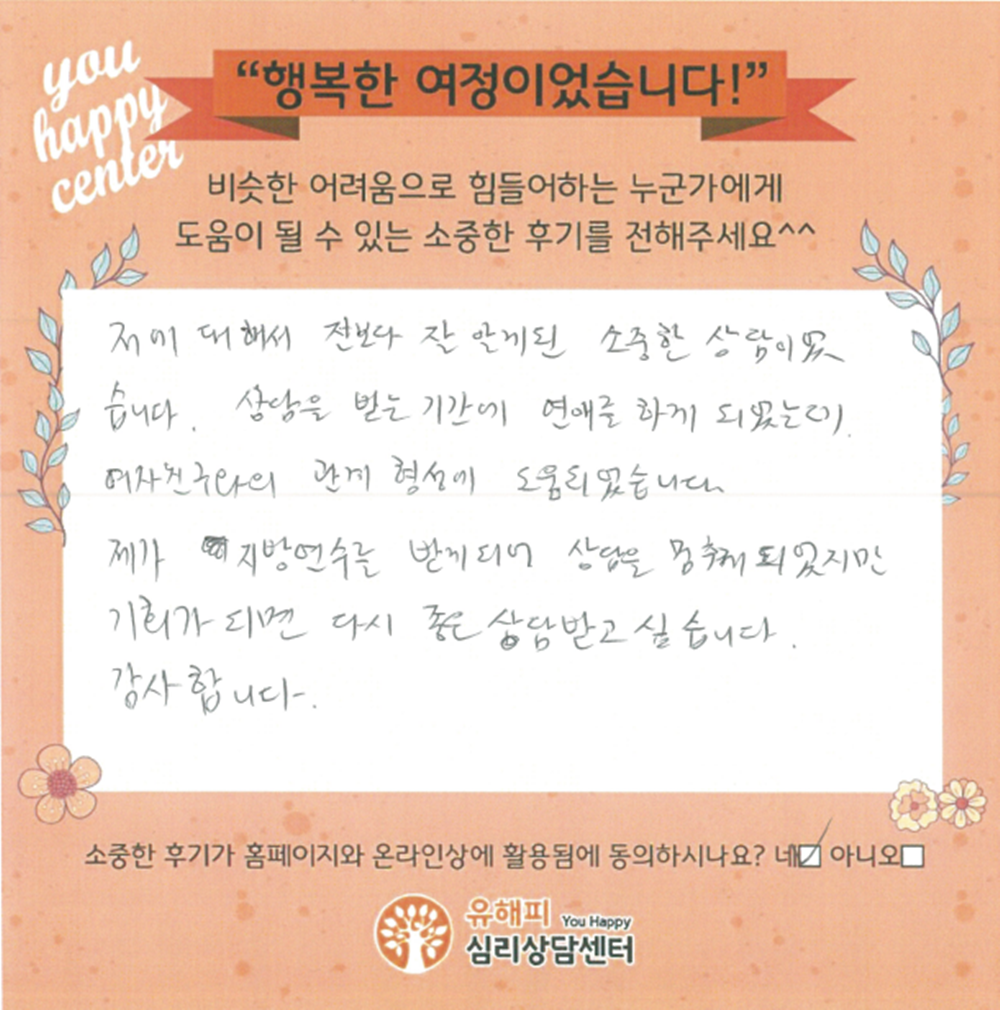 you
happy
center
“행복한 여정이었습니다!”
비슷한 어려움으로 힘들어하는 누군가에게
도움이 될 수 있는 소중한 후기를 전해주세요^^
저에 대해서 전보다 잘 알게된 소중한 상담이였
습니다. 상담을 받는 기간에 연애를 하게 되었는데.
여자친구와의 관계 형성에 도움되었습니다.
제가 지방연수를 받게되어 상담을 멈추게 되었지만
기회가 되면 다시 좋은 상담받고 싶습니다.
감사합니다.
소중한 후기가 홈페이지와 온라인상에 활용됨에 동의하시나요? 네☑ 아니오☐
유해피 You Happy
심리상담센터